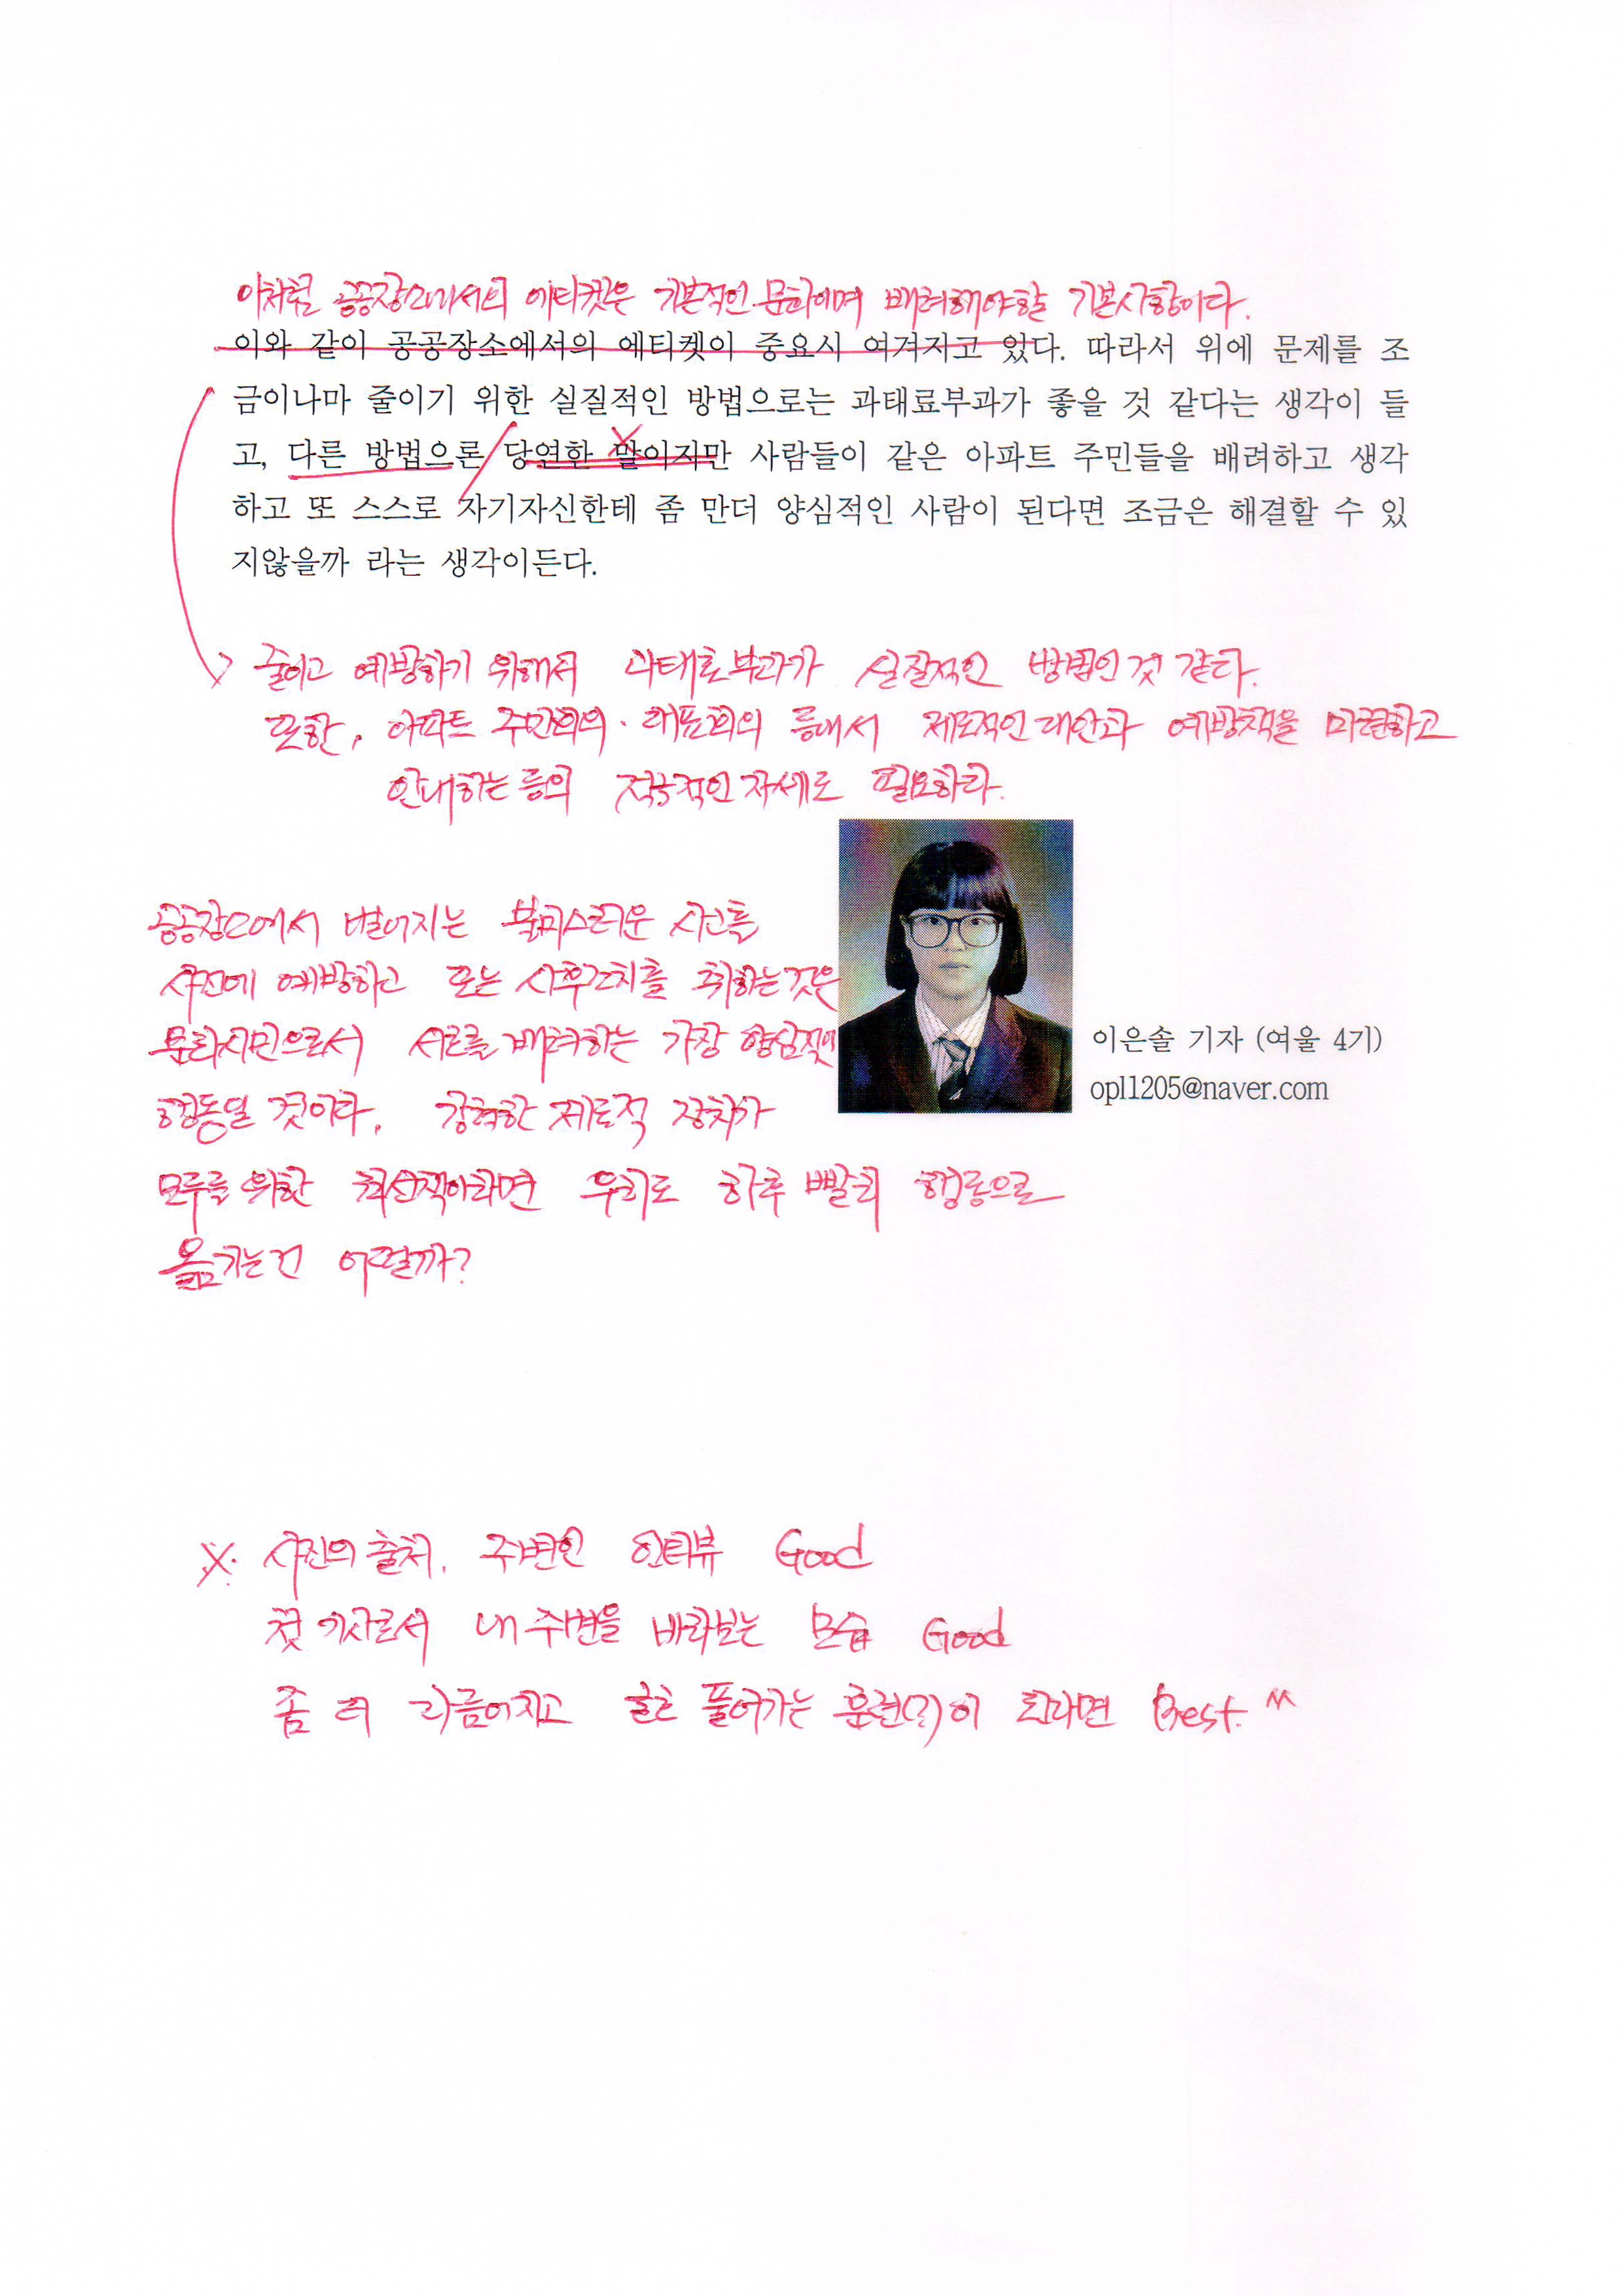 이처럼 공공장소에서의 에티켓은 기본적인 문화이며 배려해야할 기본사항이다.
이와 같이 공공장소에서의 에티켓이 중요시 여겨지고 있다. 따라서 위에 문제를 조
금이나마 줄이기 위한 실질적인 방법으로는 과태료부과가 좋을 것 같다는 생각이 들
고, 다른 방법으론 당연한 말이지만 사람들이 같은 아파트 주민들을 배려하고 생각
하고 또 스스로 자기자신한테 좀 만더 양심적인 사람이 된다면 조금은 해결할 수 있
지않을까 라는 생각이든다.
줄이고 예방하기 위해서 과태료부과가 실질적인 방법인 것 같다.
또한, 아파트 주민회의·대표회의 등에서 제도적인 대안과 예방책을 마련하고
안내하는 등의 적극적인 자세도 필요하다.
공공장소에서 벌어지는 불미스러운 사고를
사전에 예방하고 또는 사후조치를 취하는것은
문화시민으로서 서로를 배려하는 가장 양심적인
행동일 것이다. 강력한 제도적 장치가
모두를 위한 최선책이라면 우리도 하루 빨리 행동으로
옮기는건 어떨까?
이은솔 기자 (여울 4기)
opl1205@naver.com
※ 사진의 출처, 주변인 인터뷰 Good
첫 기사로서 내 주변을 바라보는 모습 Good
좀 더 다듬어지고 글로 풀어가는 훈련(?)이 된다면 Best. ^^